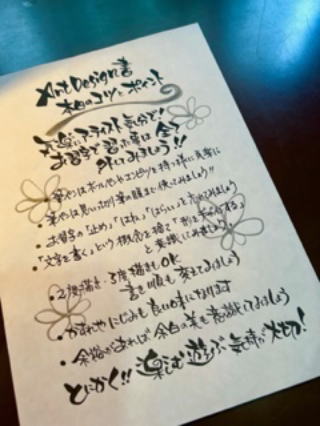 Art Design書
本日のコツとポイント
気楽にアーティスト気分で!
お習字で習った事は全て
外してみましょう!!
・筆やはボールペンやエンピツを持つ様に気楽に
・筆やは思い切り筆の腹まで使ってみましょう!!
・お習字の「止め」「はね」「はらい」を忘れてみましょう
・「文字を書く」という概念を捨て「形をデザインする」
と意識してみましょう
・2度描き・3度描きもOK
書き順も変えてみましょう
・かすれやにじみも良い味になります
・余裕があれば、余白の美も意識してみましょう
とにかく!!楽しむ遊ぶ気持ちが大切!